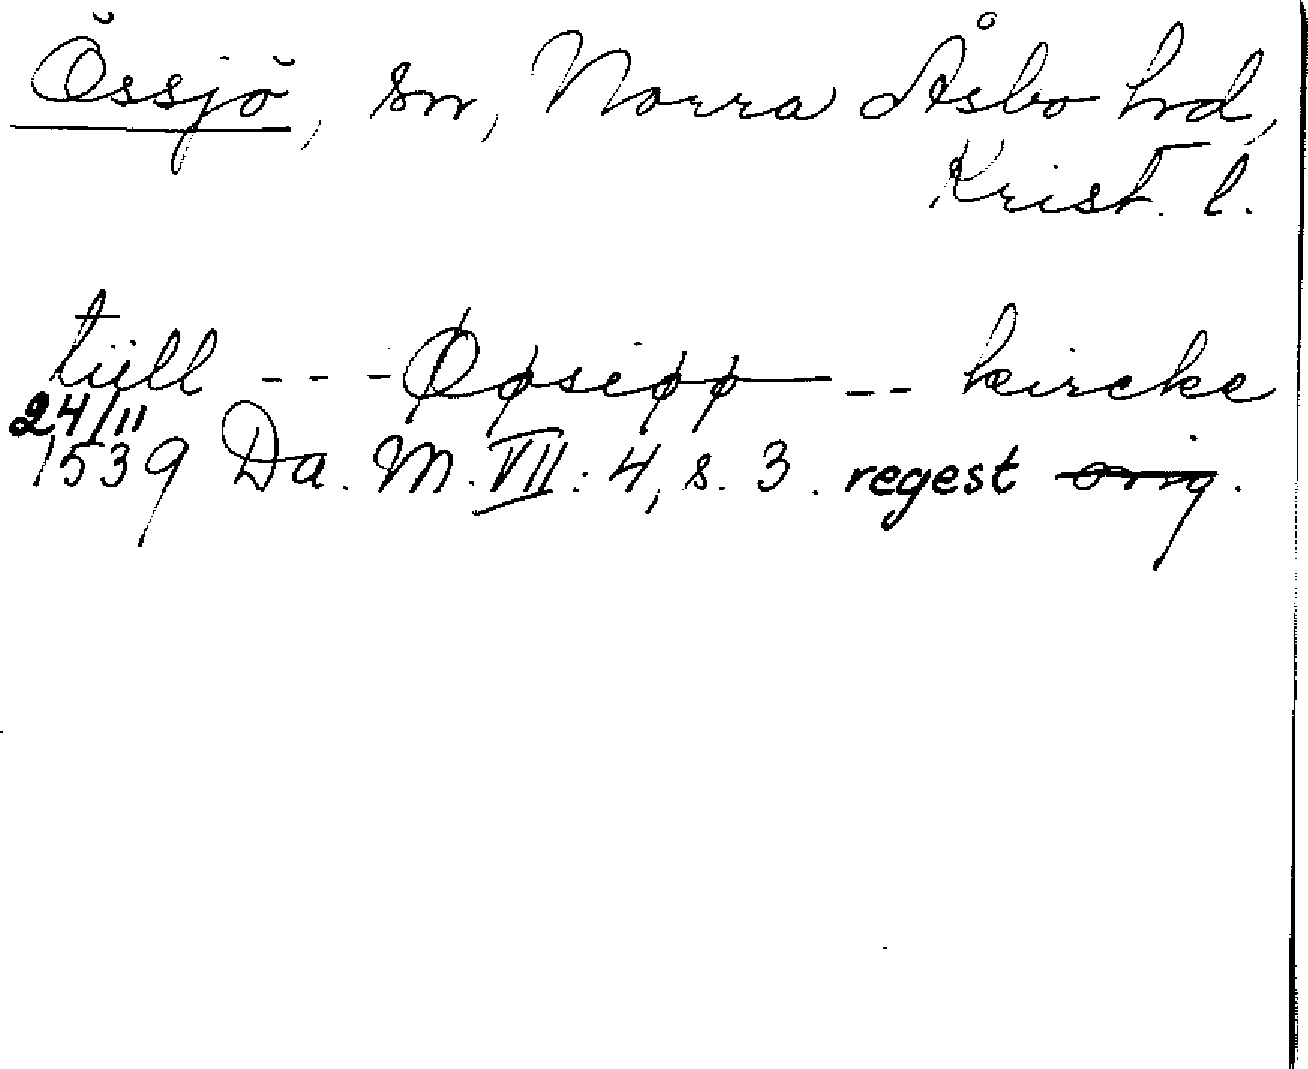 Össjö, sn, Norra Åsbo hd,
Krist. l.
tiill - - - Øøsiøø - - kircke
24/11
1539 Da. M. VII: 4, s. 3. regest orig.